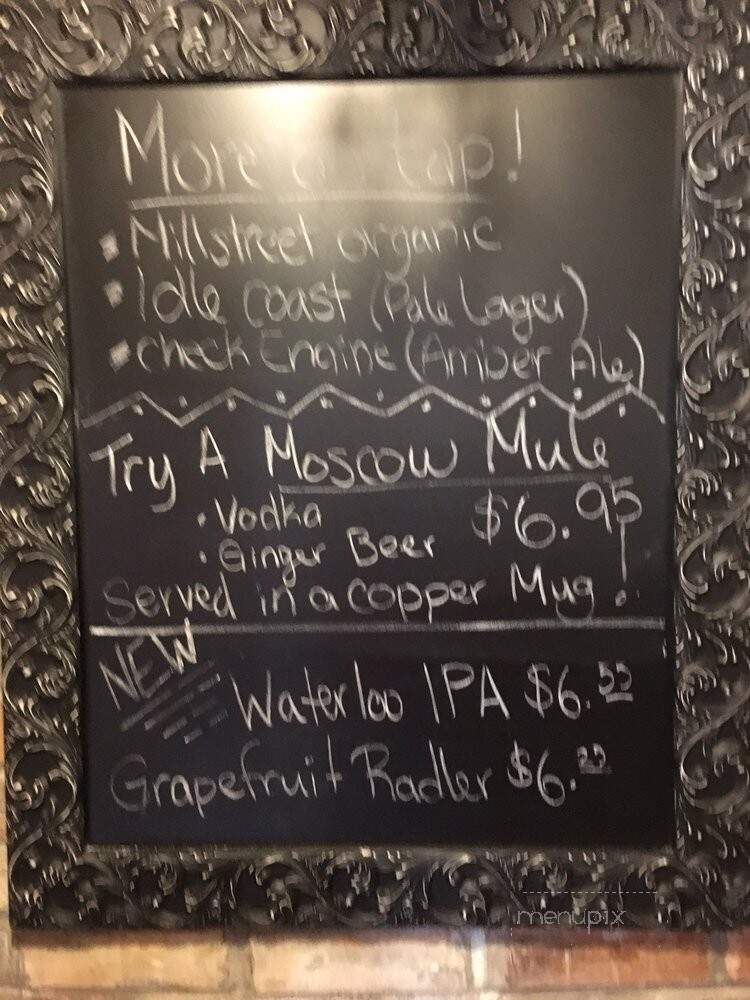 More on tap!
Millstreet organic
Idle coast (Pale Lager)
check Engine (Amber Ale)
Try A Moscow Mule
• Vodka $6.95
• Ginger Beer
Served in a copper Mug!
NEW
Waterloo IPA $6.55
Grapefruit Radler $6.
menupix